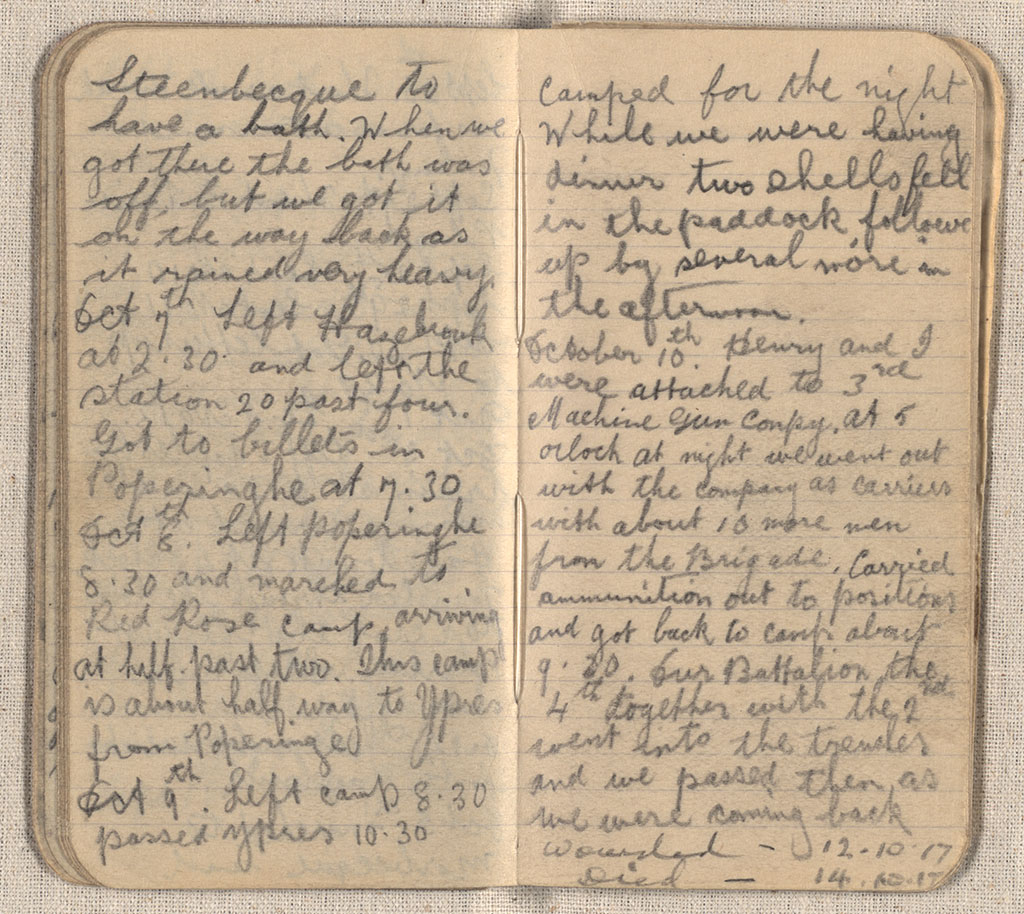 Steenbecque to
have a bath. When we
got there the bath was
off, but we got it
on the way back as
it rained very heavy.
Oct 7th Left Hazebrouk
at 2.30 and left the
station 20 past four.
Got to billets in
Poperinghe at 7.30
Oct 8th. Left Poperinghe
8.30 and marched to
Red Rose camp arriving
at half past two. This camp
is about half way to Ypres
from Poperinge
Oct 9th. Left camp 8.30
passed Ypres 10.30
camped for the night
While we were having
dinner two shells fell
in the paddock followe
up by several more in
the afternoon.
October 10th. Henry and I
were attached to 3rd
Machine Gun Conpy. at 5
oclock at night we went out
with the company as carriers
with about 10 more men
from the Brigade. Carried
ammunition out to positions
and got back to camp about
9.30. Our Battalion the
4th together with the 2nd
went into the trenches
and we passed them as
we were coming back
Wounded - 12.10.17
Died - 14.10.17